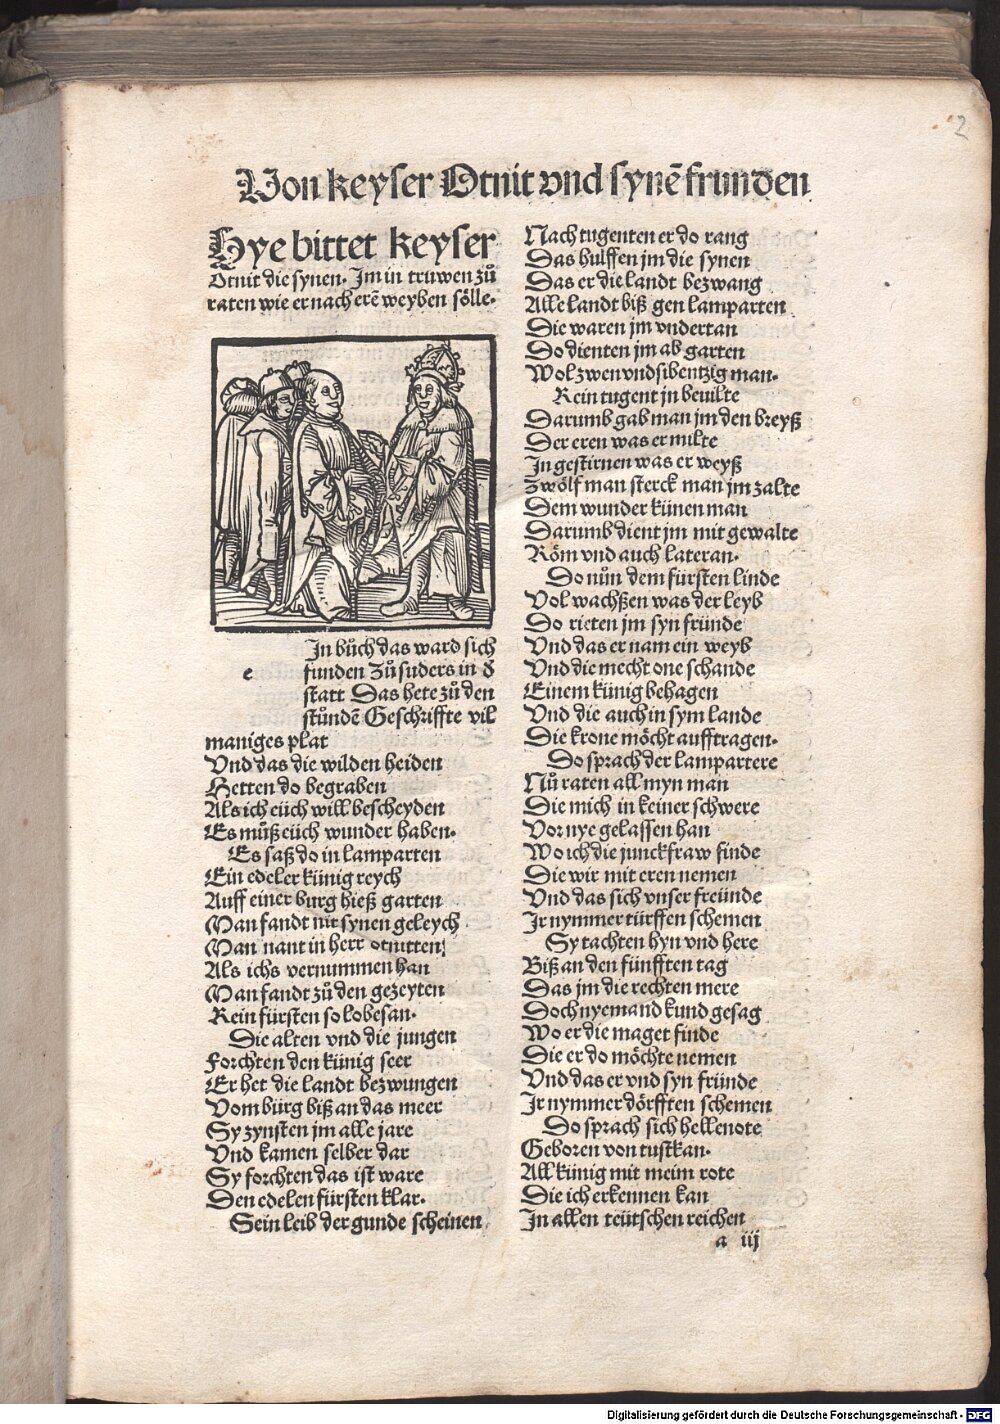 2
Von keyser Otnit vnd synē frunden
Hye bittet keyser
Otnit die synen. Im in truwen zů
raten wie er nach erē weyben sölle.
e
In bůch das ward sich
funden Zů suders in d
statt Das hete zů den
stůndē Geschriffte vil
maniges plat
Vnd das die wilden heiden
Hetten do begraben
Als ich eüch will bescheyden
Es můß eüch wunder haben.
Es saß do in lamparten
Ein edeler künig reych
Auff einer burg hieß garten
Man fandt nit synen geleych
Man nant in herr otnitten
Als ichs vernummen han
Man fandt zů den gezeyten
Rein fürsten so lobesan.
Die alten vnd die jungen
Forchten den künig seer
Er het die landt bezwungen
Vom bürg biß an das meer
Sy zynsten jm alle jare
Vnd kamen selber dar
Sy forchten das ist ware
Den edelen fürsten klar.
Sein leib der gunde scheinen
Nach tugenten er do rang
Das hulffen jm die synen
Das er die landt bezwang
Alle landt biß gen lamparten
Die waren jm vndertan
Do dienten jm ab garten
Wol zwen vnd sibentzig man.
Rein tugent jn beuilte
Darumb gab man jm den breyß
Der eren was er milte
In gestirnen was er weyß
Zwölf man sterck man jm zalte
Dem wunder künen man
Darumb dient jm mit gewalte
Röm vnd auch lateran.
Do nůn dem fürsten linde
Vol wachßen was der leyb
Do rieten jm syn fründe
Vnd das er nam ein weyb
Vnd die mecht one schande
Einem künig behagen
Vnd die auch in sym lande
Die krone möcht aufftragen.
Do sprach der lampartere
Nů raten all myn man
Die mich in keiner schwere
Vor nye gelassen han
Wo ich die junckfraw finde
Die wir mit eren nemen
Vnd das sich vnser freünde
Ir nymmer türffen schemen
Sy tachten hyn vnd here
Biß an den fünfften tag
Das jm die rechten mere
Doch nyemand kund gesag
Wo er die maget finde
Die er do möchte nemen
Vnd das er vnd syn fründe
Ir nymmer dörfften schemen
Do sprach sich hellenote
Geboren von tustkan.
All künig mit meim rote
Die ich erkennen kan
In allen teütschen reichen
a iij
Digitalisierung gefördert durch die Deutsche Forschungsgemeinschaft - DFG